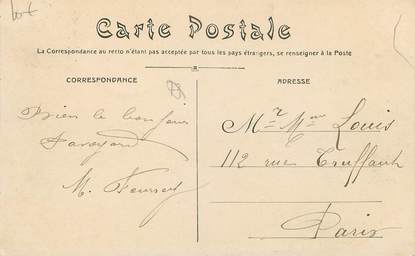 Carte Postale
La Correspondance au recto n'étant pas acceptée par tous les pays étrangers, se renseigner à la Poste
CORRESPONDANCE
ADRESSE
Bien le bonjour
Savoyard
M.
Mr Mme Louis
112 rue Truffaut
Paris